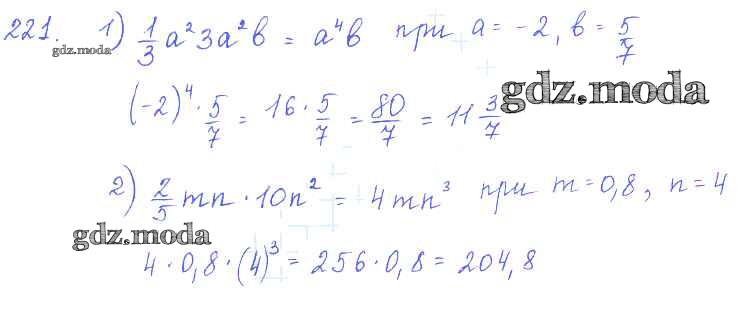 221. 1) 1/3 a²3a²b = a⁴b при a = -2, b = 5/7
gdz.moda
(-2)⁴ · 5/7 = 16 · 5/7 = 80/7 = 11 3/7
gdz.moda
2) 2/5 mn · 10n² = 4mn³ при m = 0,8, n = 4
gdz.moda
4 · 0,8 · (4)³ = 256 · 0,8 = 204,8